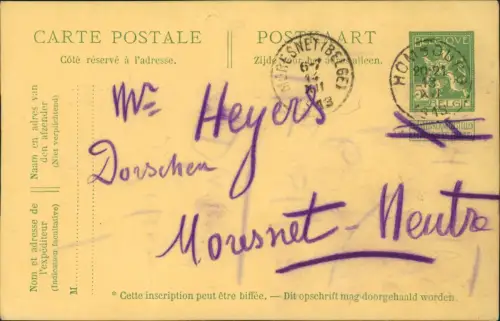 CARTE POSTALE
POSTKAART
Côté réservé à l'adresse.
Zijde
alleen.
MORESNET (BELGE)
6-7
14
XI
13
HOMBOURG
20-21
13
XI
BELGIË
Mr Heyers
Dorschen
Moresnet-Neutre
Naam en adres van
den afzender
(Niet verplichtend)
Nom et adresse de
l'expéditeur
(Indication facultative)
M
* Cette inscription peut être biffée. — Dit opschrift mag doorgehaald worden.